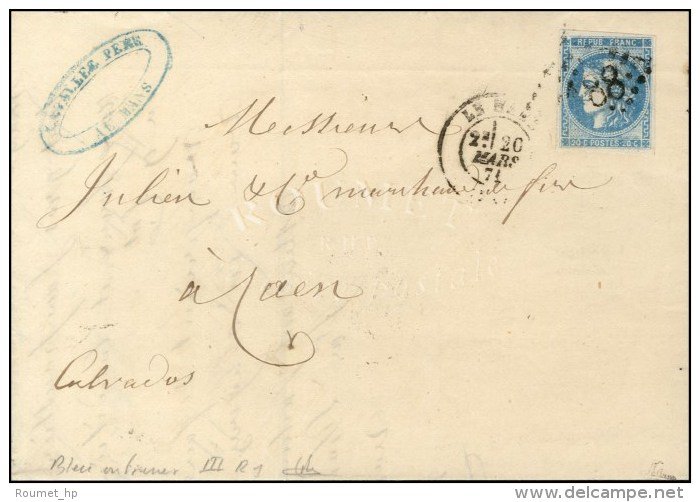 PERE
LE MANS
REPUB FRANC
88
20 C POSTES 20 C
LE MANS
2E 20
MARS
71
Messieurs
Julien & Cie marchands de fer
à Caen
Calvados
ROUMET
Bleu outremer III R 1
Roumet_hp
delcampe.net